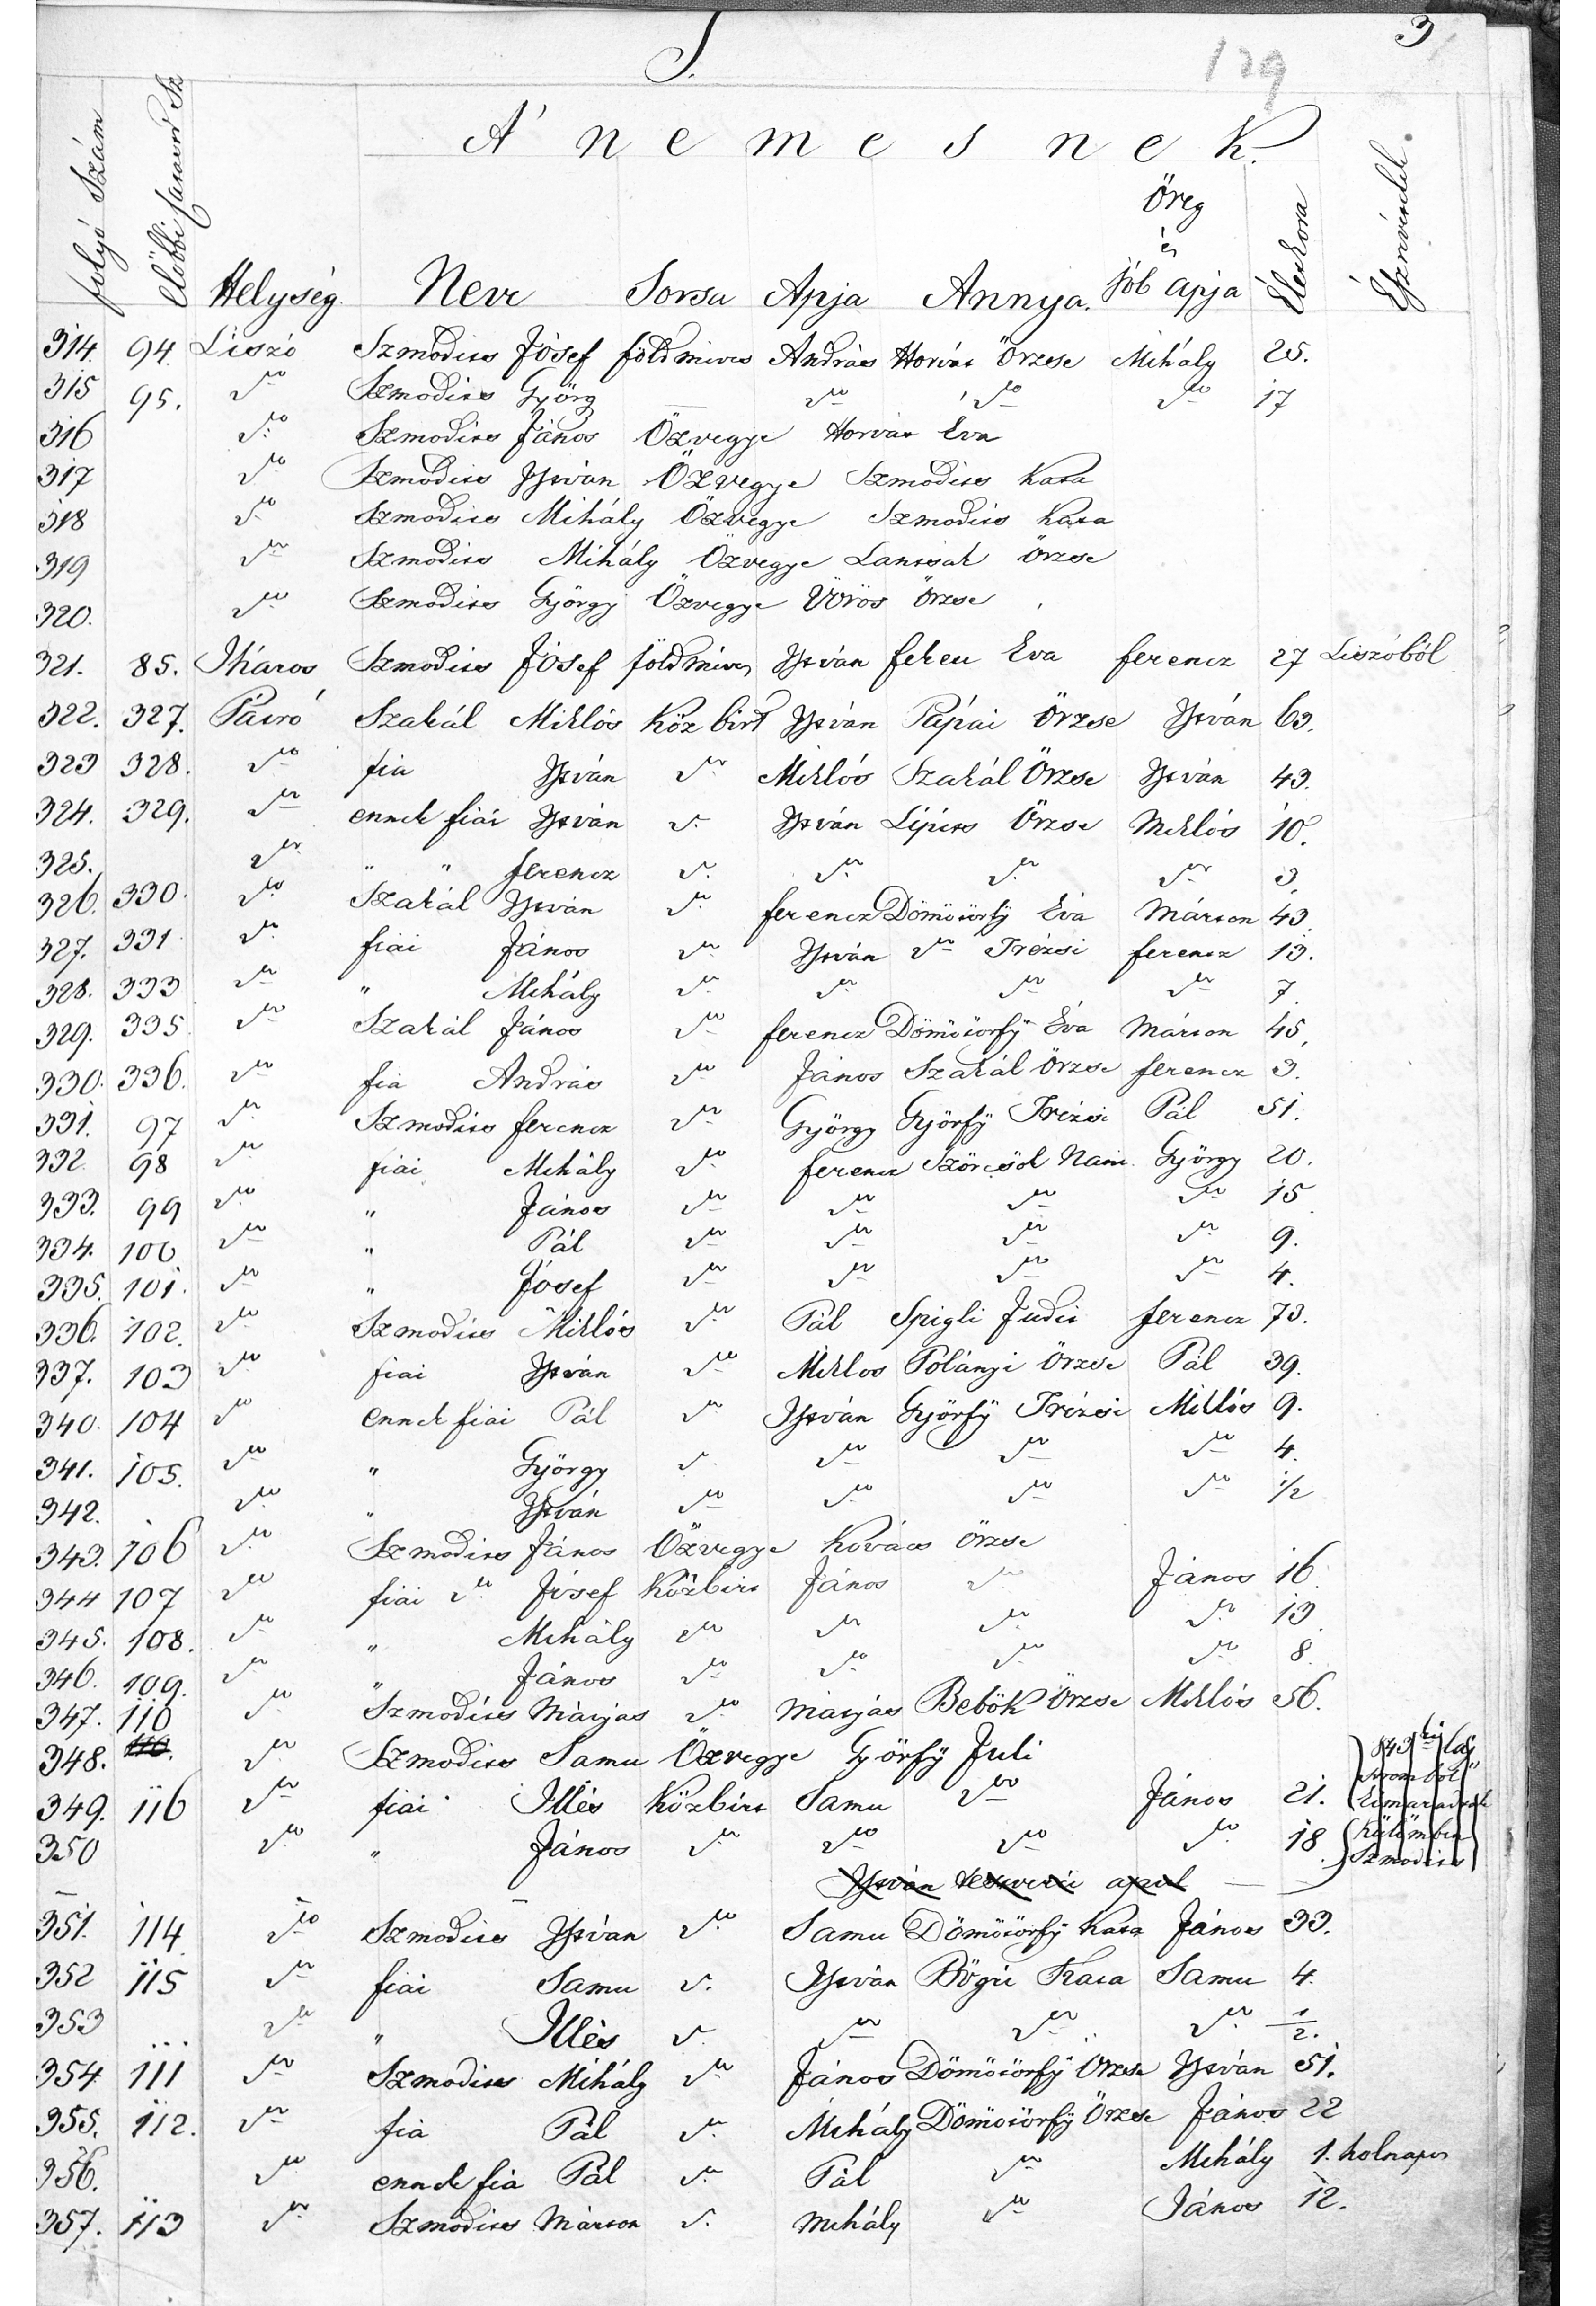 3
S.
129
A' nemesnek.
folyó Szám Előbbi Helység Neve Sorsa Apja Annya. Öreg és jób apja Élet kora Észrevétel.
314. 94. Liszó Szmodics Jósef földmives András Horvát Örzse Mihály 25.
315 95. do Szmodics Györg — do do do 17
316 do Szmodics János Özvegye Horvát Eva
317 do Szmodics István Özvegye Szmodics Kata
318 do Szmodics Mihály Özvegye Szmodics Kata
319 do Szmodics Mihály Özvegye Lancsak Örzse
320. do Szmodics György Özvegye Vörös Örzse
321. 85. Iháros Szmodics Jósef földmives István feheu Eva ferencz 27 Liszóból
322. 327. Pátró Szakál Miklós Köz birt István Pápai Örzse István 63.
323 328. do fia István do Miklós Szakál Örzse István 43.
324. 329. do ennek fiai István d. István Lipics Örzse Miklós 10.
325. do " " ferencz d. do do do 3.
326. 330. do Szakál István do ferencz Dömötörfÿ Eva Márton 43
327. 331 do fiai János do István do Trézsi ferencz 13.
328. 333 do " Mihály do do do do 7
329. 335. do Szakál János do ferencz Dömötörfÿ Éva Márton 45.
330. 336. do fia András do János Szakál Örzse ferencz 3.
331. 97 do Szmodics ferencz do György Györfÿ Trézsi Pál 51.
332. 98 do fiai Mihály do ferencz Szörcsök Nani György 20.
333. 99 do " János do do do do 15
334. 100 do " Pál do do do do 9.
335. 101. do " Jósef do do do do 4.
336. 102. do Szmodics Miklós do Pál Spigli Judit ferencz 73.
337. 103 do fiai István do Miklos Polányi Örzse Pál 39.
340. 104 do ennek fiai Pál do István Györfÿ Trézsi Miklós 9.
341. 105. do " György d. do do do 4.
342. do " István do do do do 1/2
343. 106 do Szmodics János Özvegye Kovács Örzse
344 107 do fiai do Jósef Közbirt János do János 16
345. 108. do " Mihály do do do do 13
346. 109. do " János do do do do 8
347. 110 do Szmodics Mátjas do Mátjás Bebök Örzse Miklós 56.
348. 110. do Szmodics Samu Özvegye Györfÿ Juli
349. 116 do fiai Illés Közbirt Samu do János 21.
350 do " János do do do do 18
István testvérü apul
351. 114 do Szmodics István do Samu Dömötörfÿ Kata János 33.
352 115 do fiai Samu d. István Bögre Kata Samu 4.
353 do " Illés d. do do do 1/2.
354. 111 do Szmodics Mihály do János Dömötörfÿ Örzse István 51.
355. 112. do fia Pál do Mihály Dömötörfÿ Örzse János 22
356. do ennek fia Pál do Pál do Mihály 1. holnapos
357. 113 do Szmodics Márton d. Mihály do János 12.